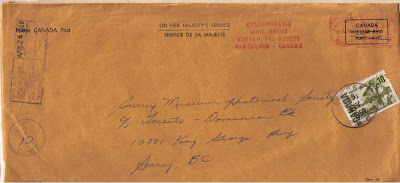 Postes CANADA Post
ON HER MAJESTY'S SERVICE
SERVICE DE SA MAJESTÉ
UNDELIVERABLE
MAIL OFFICE
BUREAU DES REBUTS
VANCOUVER - CANADA
CANADA
POSTAGE PAID
PORT PAYÉ
10
Surrey Museum Historical Society
c/o Toronto - Dominion Bk
10381 King George Hwy
Surrey, BC